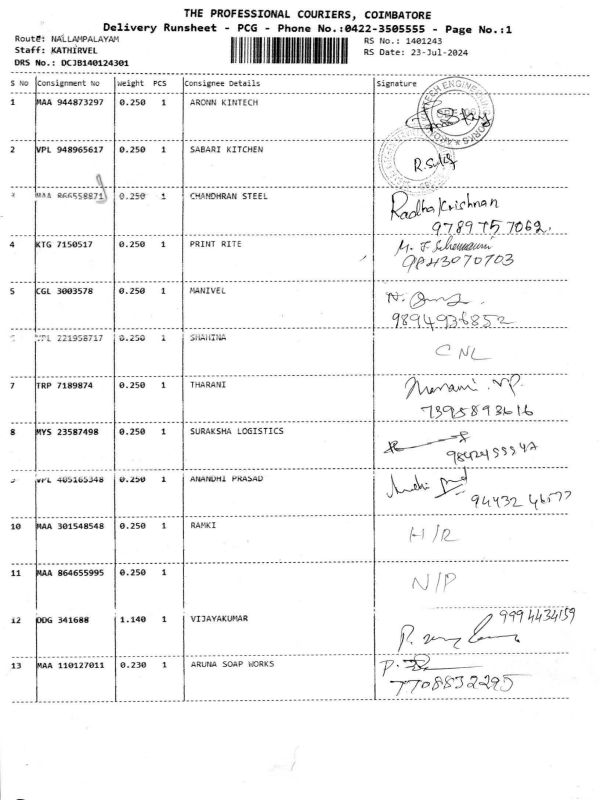 THE PROFESSIONAL COURIERS, COIMBATORE
Delivery Runsheet - PCG - Phone No.:0422-3505555 - Page No.:1
Route: NALLAMPALAYAM RS No.: 1401243
Staff: KATHIRVEL RS Date: 23-Jul-2024
DRS No.: DCJB140124301
S No Consignment No Weight PCS Consignee Details Signature
1 MAA 944873297 0.250 1 ARONN KINTECH
2 VPL 948965617 0.250 1 SABARI KITCHEN
3 MAA 866558871 0.250 1 CHANDHRAN STEEL Radha Krishnan
9789757062.
4 KTG 7150517 0.250 1 PRINT RITE
9843070703
5 CGL 3003578 0.250 1 MANIVEL
9894936852
6 VPL 221958717 0.250 1 SHAHINA CNL
7 TRP 7189874 0.250 1 THARANI
7395893616
8 MYS 23587498 0.250 1 SURAKSHA LOGISTICS
9 VPL 405165348 0.250 1 ANANDHI PRASAD
94432 46577
10 MAA 301548548 0.250 1 RAMKI H/R
11 MAA 864655995 0.250 1 N/P
12 ODG 341688 1.140 1 VIJAYAKUMAR 9994434159
13 MAA 110127011 0.230 1 ARUNA SOAP WORKS
7708832295